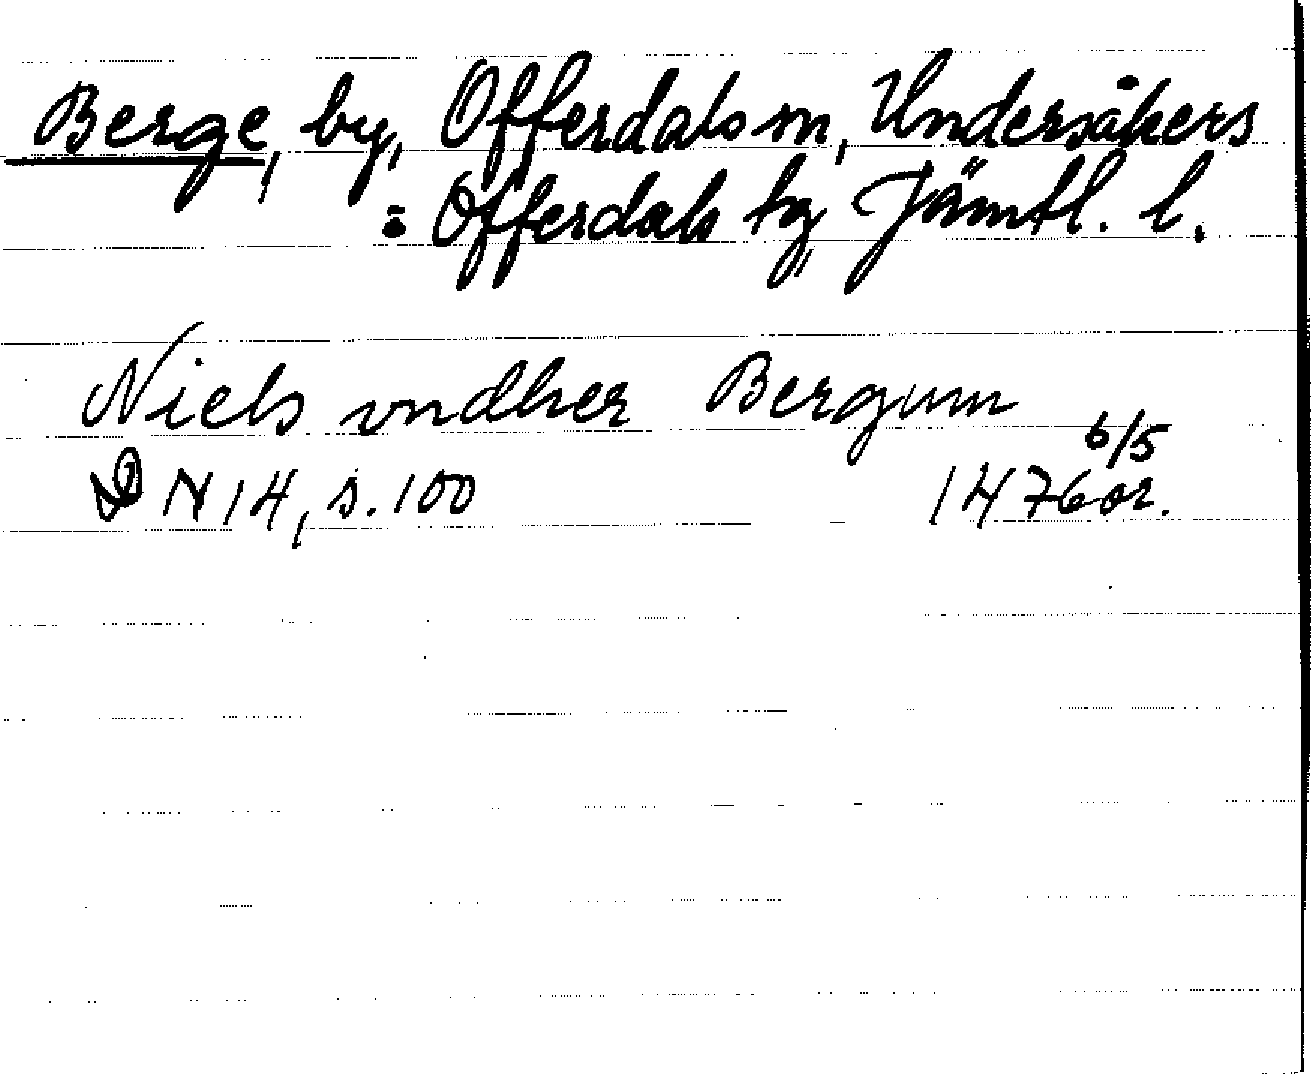 Berge, by, Offerdals sn, Undersåkers
: Offerdals tg, Jämtl. l.
Niels vndher Bergum
N 14, s. 100 6/5 1476 or.